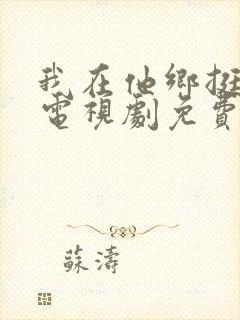 我在他鄉挺
電視劇免費
蘇濤